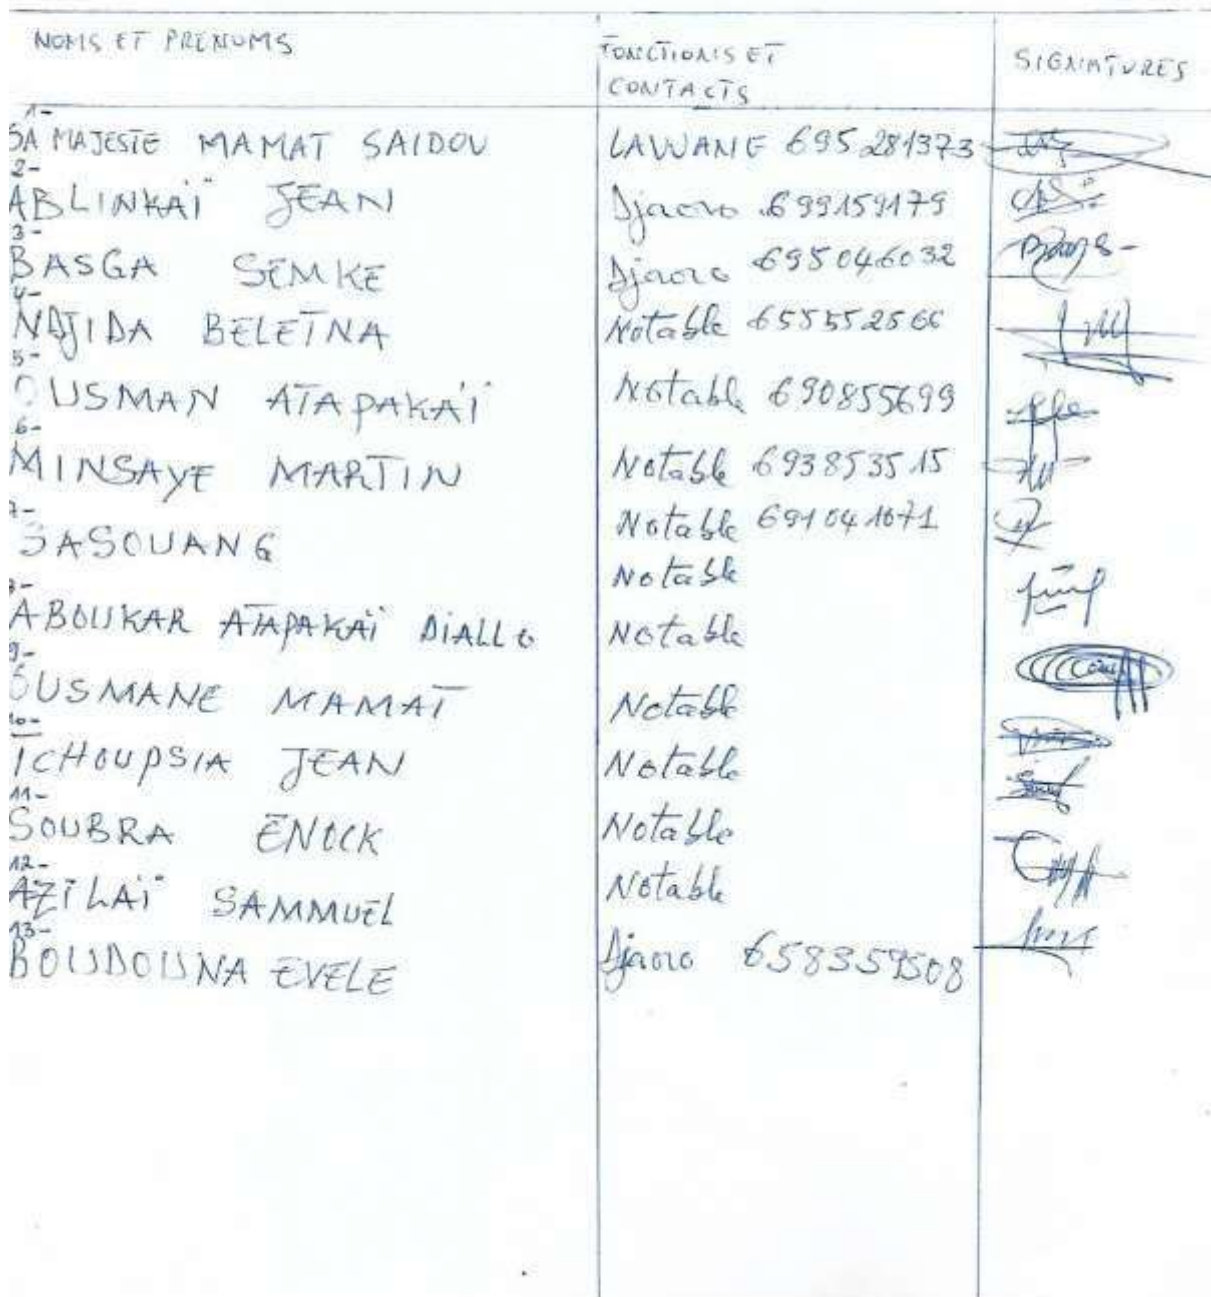 NOMS ET PRENOMS
FONCTIONS ET
CONTACTS
SIGNATURES
1-
SA MAJESTE MAMAT SAIDOU LAWANE 695281373
2-
ABLINKAÏ JEAN Djaoro 699159179
3-
BASGA SEMKE Djaoro 695046032
4-
NDJIDA BELETNA Notable 655552566
5-
OUSMAN ATAPAKAÏ Notable 690855699
6-
MINSAYE MARTIN Notable 693853515
7-
SASOUANG Notable 691041071
Notable
8-
ABOUKAR ATAPAKAÏ DIALLO Notable
9-
OUSMANE MAMAT Notable
10-
TCHOUPSIA JEAN Notable
11-
SOUBRA ENOCK Notable
12-
AZILAÏ SAMMUEL Notable
13-
BOUDOUNA EVELE Djaoro 658359508